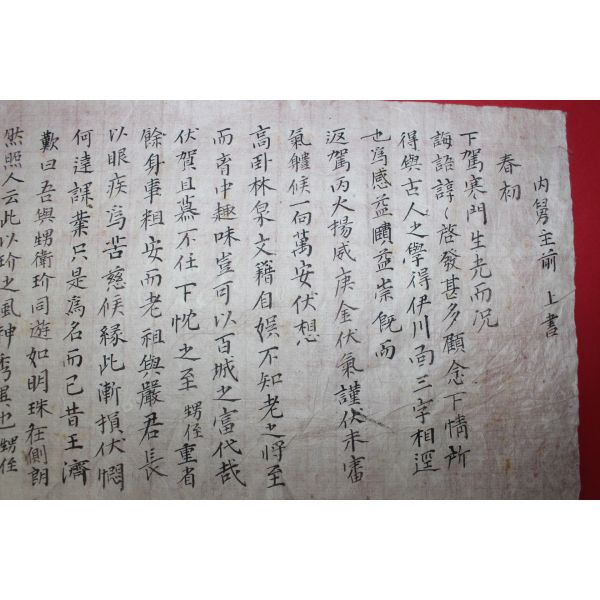 內舅主前 上書
春初
下駕寒門生光而況
誨語諄〻啓發甚多顧念下情所
得與古人之學得伊川面三字相逕
也爲感益賾益崇旣而
返駕丙火揚威庚金伏氣謹伏未審
氣軆候一向萬安伏想
高卧林泉文籍自娛不知老之將至
而畜中趣味豈可以百城之富代哉
伏賀且慕不任下忱之至 甥侄重省
餘身事粗安而老祖與嚴君長
以眼疾爲苦慈候緣此漸損伏悶
何達課業只是爲名而已昔王濟
歎曰吾與甥衛玠同遊如明珠在側朗
然照人云此以玠之風神秀異也甥侄